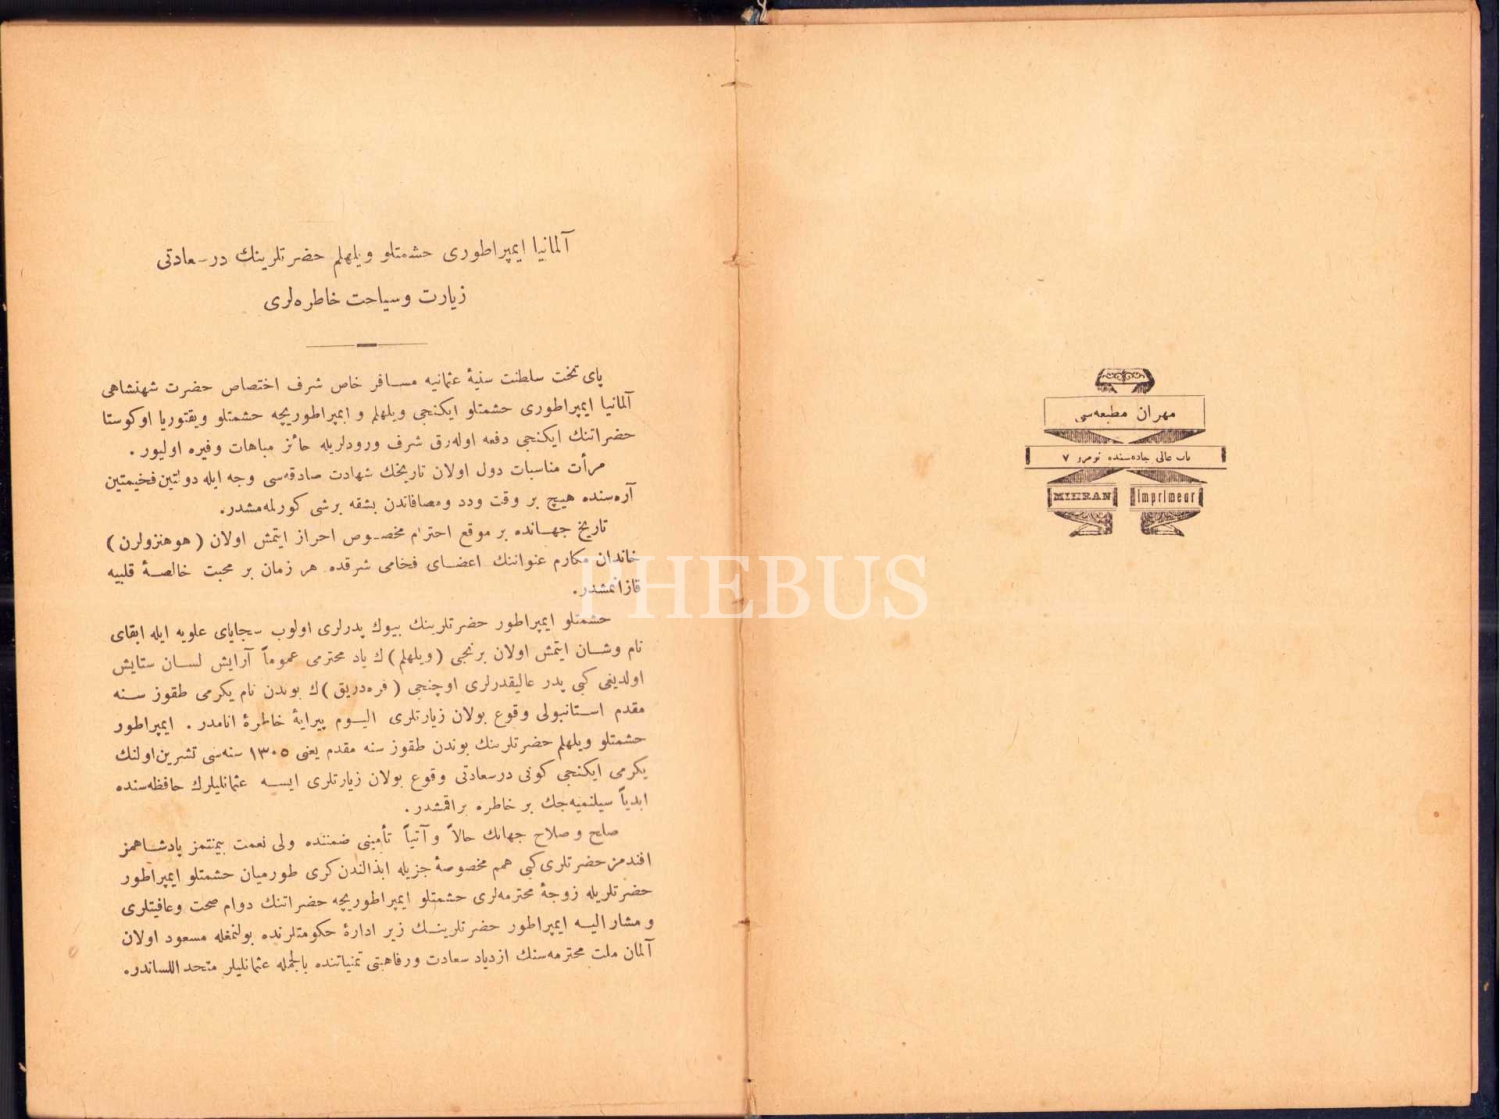 مهران مطبعه‌سی
باب عالی جاده‌سنده نومرو ٧
MIHRAN imprimeur
آلمانیا ایمپراطوری حشمتلو ویلهلم حضرتلرینك درسعادتی
زیارت وسیاحت خاطره‌لری
پای تخت سلطنت سنیهٔ عثمانیه مسافر خاص شرف اختصاص حضرت شهنشاهی
آلمانیا ایمپراطوری حشمتلو ایکنجی ویلهلم و ایمپراطوریچه حشمتلو ویقتوریا اوکوستا
حضراتنك ایکنجی دفعه اوله‌رق شرف ورودلریله حائز مباهات وفیره اولیور .
مرأت مناسبات دول اولان تاریخك شهادت صادقه‌سی وجه ایله دولتین فخیمتین
آره‌سنده هیچ بر وقت ودد ومصافاتدن بشقه برشی کورلمه‌مشدر.
تاریخ جهانده بر موقع احترام مخصوص احراز ایتمش اولان ( هوهنزولرن )
خاندان مکارم عنواننك اعضای فخامی شرقده هر زمان بر محبت خالصهٔ قلبیه
قازانمشدر.
حشمتلو ایمپراطور حضرتلرینك بیوك پدرلری اولوب سجایای علویه ایله ابقای
نام وشان ایتمش اولان برنجی ( ویلهلم ) ك یاد محترمی عموماً آرایش لسان ستایش
اولدیغی کبی پدر عالیقدرلری اوچنجی ( فره‌دریق ) ك بوندن تام یکرمی طقوز سنه
مقدم استانبولی وقوع بولان زیارتلری الیوم پیرایهٔ خاطرهٔ انامدر . ایمپراطور
حشمتلو ویلهلم حضرتلرینك بوندن طقوز سنه مقدم یعنی ١٣٠٥ سنه‌سی تشرین‌اولنك
یکرمی ایکنجی کونی درسعادتی وقوع بولان زیارتلری ایسه عثمانلیلرك حافظه‌سنده
ابدیاً سیلنمیه‌جك بر خاطره براقمشدر.
صلح و صلاح جهانك حالاً و آتیاً تأمینی ضمننده ولی نعمت بیمنتمز پادشاهمز
افندمز حضرتلری کبی همم مخصوصهٔ جزیله ابذالندن کری طورمیان حشمتلو ایمپراطور
حضرتلریله زوجهٔ محترمه‌لری حشمتلو ایمپراطوریچه حضراتنك دوام صحت وعافیتلری
و مشار الیه ایمپراطور حضرتلرینك زیر ادارهٔ حکومتلرنده بولنمغله مسعود اولان
آلمان ملت محترمه‌سنك ازدیاد سعادت ورفاهیتی تمنیاتنده بالجمله عثمانلیلر متحد اللساندر.
PHEBUS